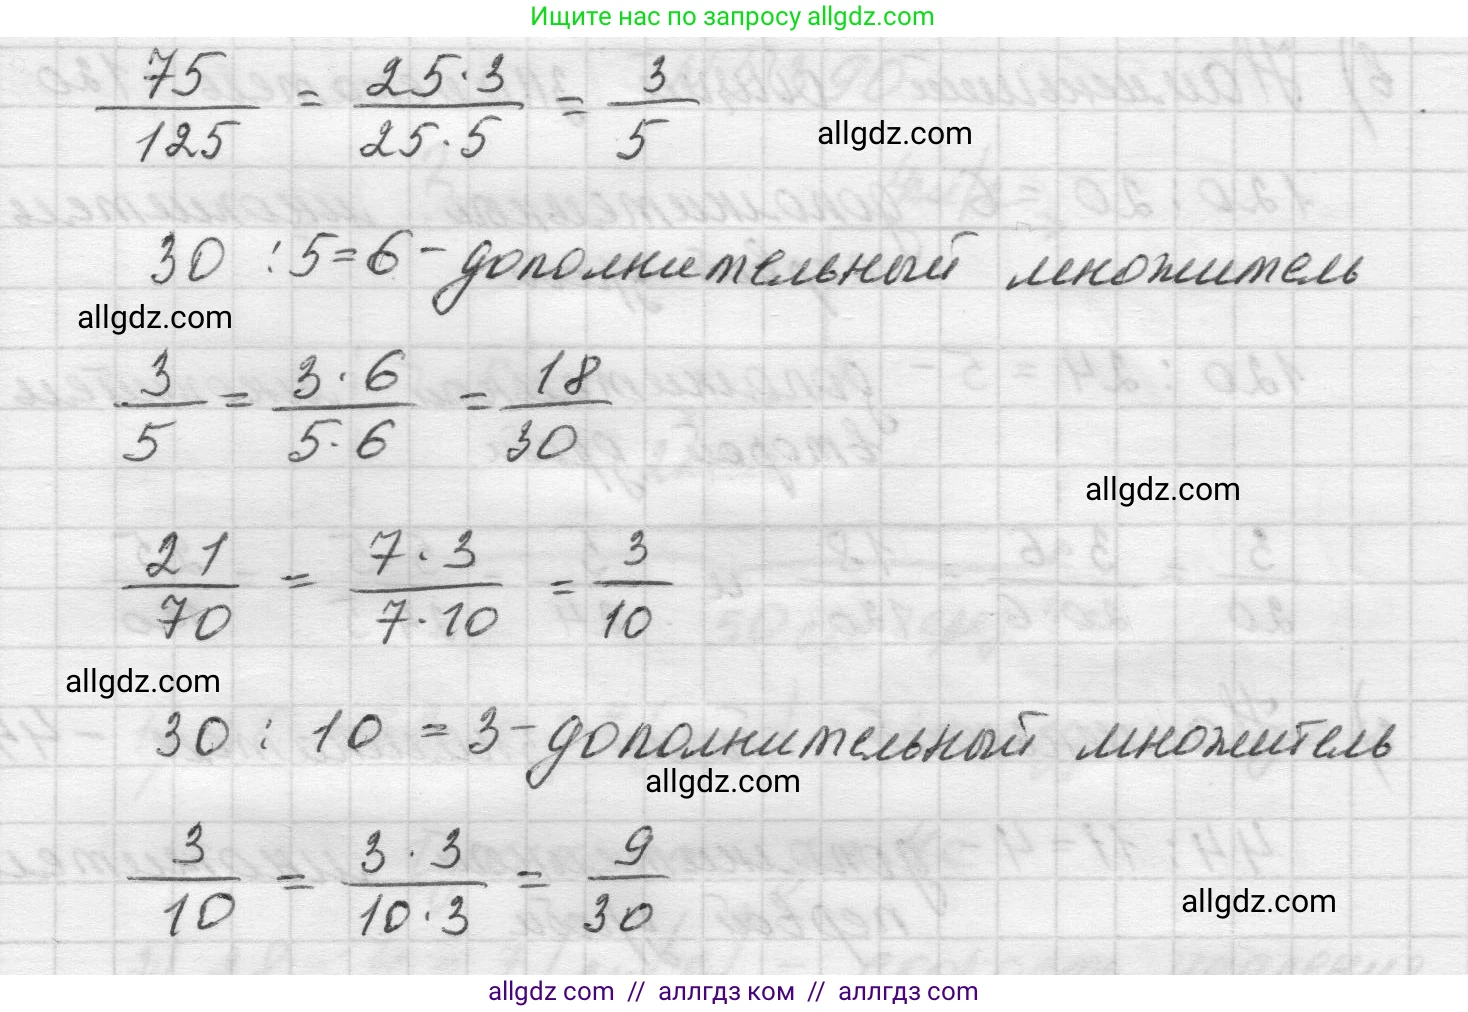 Ищите нас по запросу allgdz.com
75/125 = 25·3/25·5 = 3/5
allgdz.com
30 : 5 = 6 - дополнительный множитель
allgdz.com
3/5 = 3·6/5·6 = 18/30
allgdz.com
21/70 = 7·3/7·10 = 3/10
allgdz.com
30 : 10 = 3 - дополнительный множитель
allgdz.com
3/10 = 3·3/10·3 = 9/30
allgdz.com
allgdz com // аллгдз ком // allgdz com